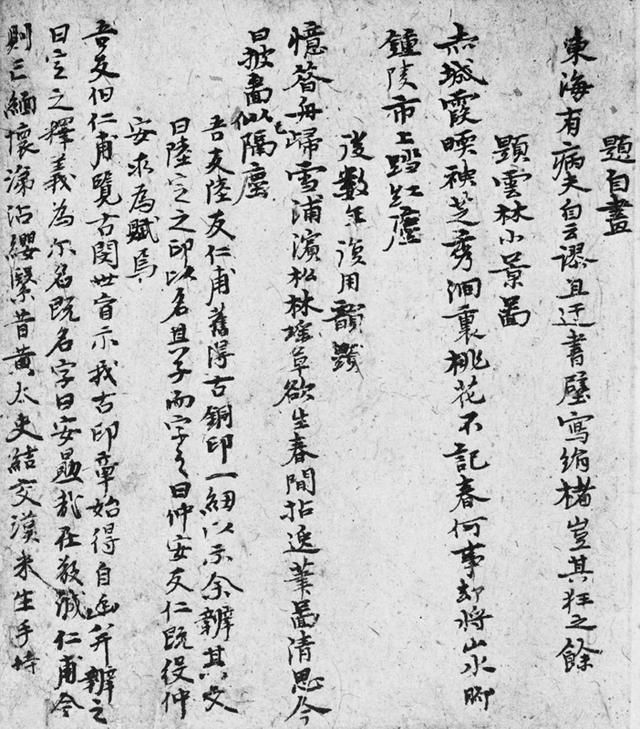 題自畫
東海有病夫自云謬且迂書壁寫絹楮豈其狂之餘
題雲林小景畵
赤城霞暎秧芝秀澗裏桃花不記春何事却將山水脚
鍾陵市上蹈紅塵
後數年復用韻題
憶昔舟歸雪浦濱松林瑤草欲生春間拈逸筆啚清思今
日披啚似隔塵
吾友陸友仁甫舊淂古銅印一紐以示余辨其文
曰陸定之印以名且子而字之曰仲安友仁既役仲
安求為賦焉
吾友伯仁甫覽古閱世盲示我古印章始得自幽并辨之
曰定之釋義為尔名既名字曰安勗哉在敬誠仁甫今
則亡緬懷涕沾纓緊昔黃太史結交漢米生手持